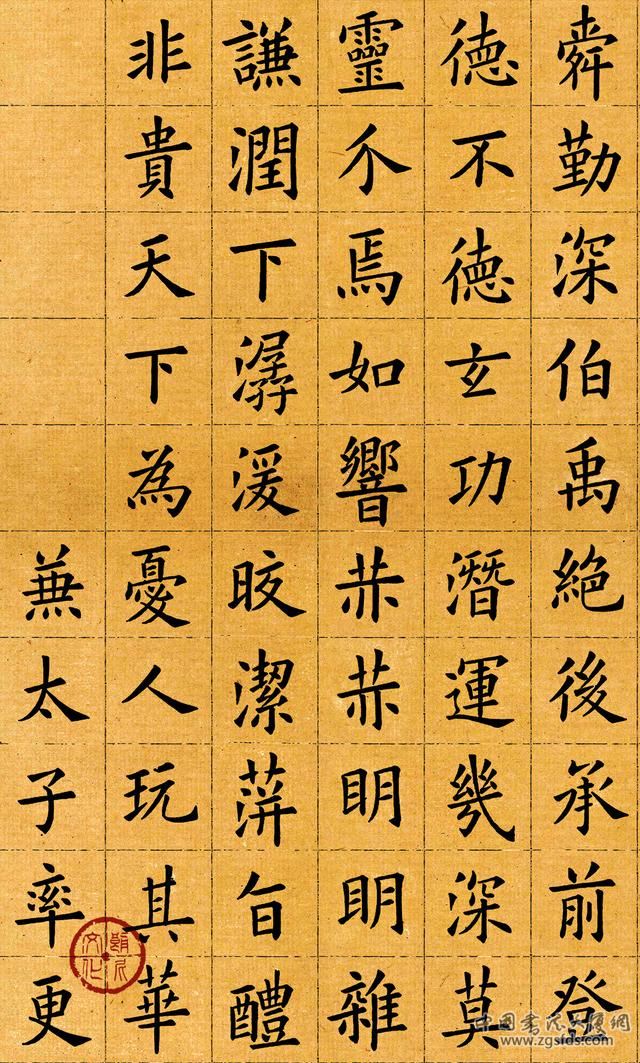 舜勤深伯禹絕後承前登
德不德玄功潛運幾深莫
靈介焉如響明明雜
謙潤下潺湲皎潔蓱旨醴
非貴天下為憂人玩其華
兼太子率更
www.zgsfds.com